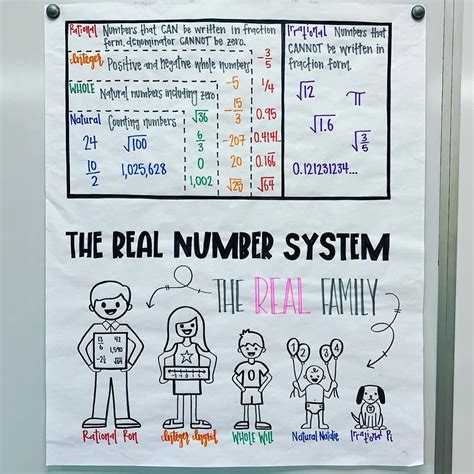 Rational Numbers that CAN be written in fraction
form, denominator CANNOT be zero.
Integer Positive and negative whole numbers
WHOLE Natural numbers including zero
Natural Counting numbers
24
√100
10/2
1,025,628
√36
6/3
0
1,002
-5
-15/3
-207
20
√25
-3/5
1/4
0.95
0.4141...
0.166
√64
Irrational Numbers that
CANNOT be written in
fraction form.
√12
π
√1.6
√3/5
0.121231234...
THE REAL NUMBER SYSTEM
THE REAL FAMILY
92
1,590
0
1 2 3 4
Rational Ron
Integer Ingrid
WHOLE Will
Natural Natalie
Irrational Pi